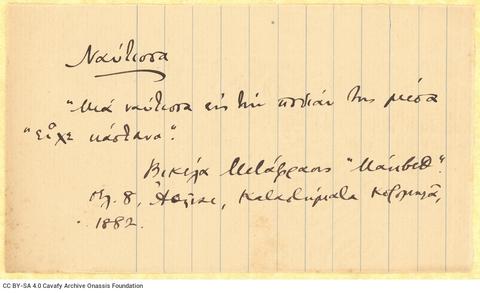 Ναύτισσα
"Μιά ναύτισσα εις την ποδιάν της μέσα
"είχε κάστανα".
Βικέλα Μετάφρασις "Μάκβεθ".
σελ. 8, Αθήναι, Καταστήματα Κορομηλά,
1882.
CC BY-SA 4.0 Cavafy Archive Onassis Foundation